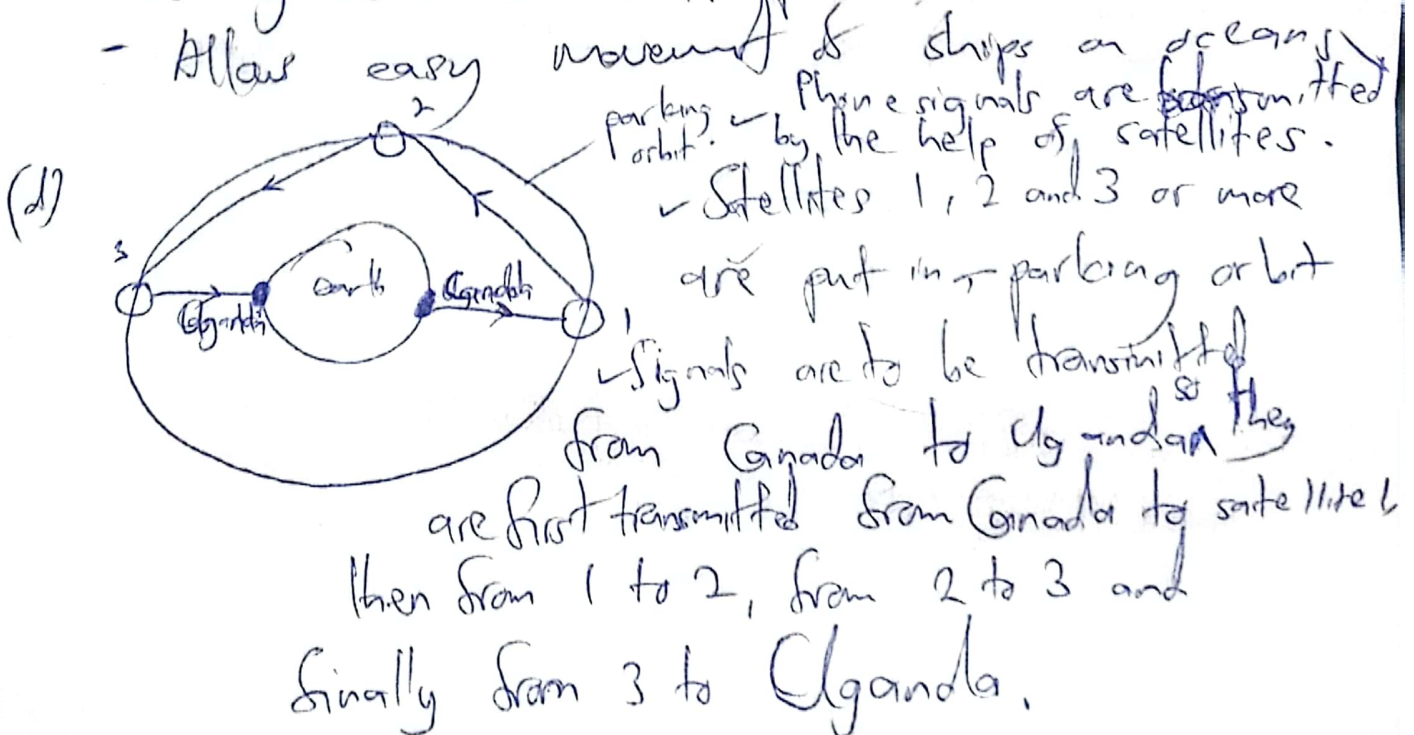 - Allow easy movement of ships on oceans
(d)
2
parking orbit.
3
earth
Uganda
1
✓ Phone signals are transmitted
by the help of satellites.
✓ Satellites 1, 2 and 3 or more
are put in parking orbit
✓ Signals are to be transmitted
from Canada to Uganda so they
are first transmitted from Canada to satellite 1,
then from 1 to 2, from 2 to 3 and
finally from 3 to Uganda.